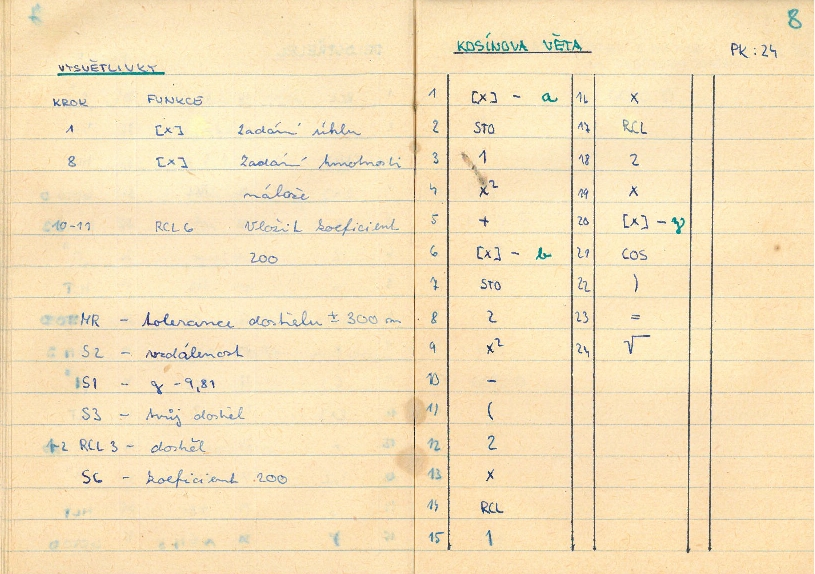 VYSVĚTLIVKY
KROK FUNKCE
1 [x] Zadání úhlu
8 [x] Zadání hmotnosti
nálože
10-11 RCL 6 Vložit koeficient
200
MR - tolerance dostřelu ± 300 m
S2 - vzdálenost
S1 - g - 9,81
S3 - tvůj dostřel
1-2 RCL 3 - dostřel
S6 - koeficient 200
8
KOSÍNOVA VĚTA
PK: 24
1 [x] - a 16 x
2 STO 17 RCL
3 1 18 2
4 x² 19 x
5 + 20 [x] - γ
6 [x] - b 21 COS
7 STO 22 )
8 2 23 =
9 x² 24 √
10 -
11 (
12 2
13 x
14 RCL
15 1